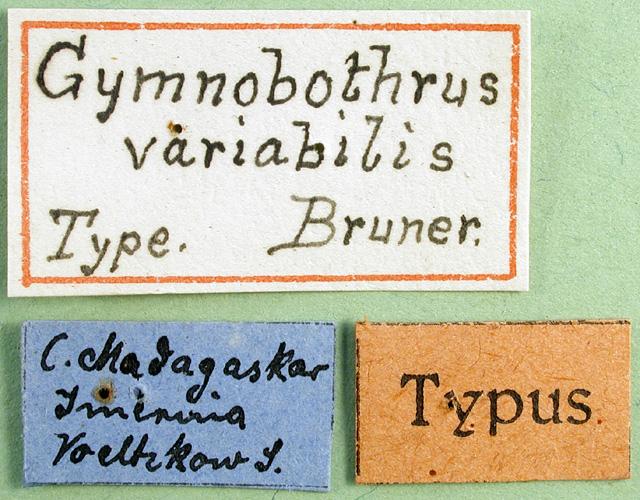 Gymnobothrus
variabilis
Type. Bruner.
C. Madagaskar
Imerina
Voeltzkow S.
Typus